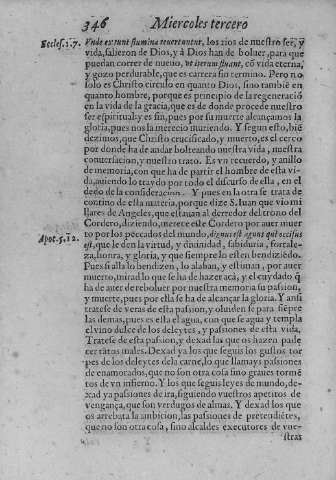 346 Miercoles tercero
Eccles. 1. 7. Vnde exeunt flumina reuertuntur, los rios de nuestro ser, y
vida, salieron de Dios, y â Dios han de boluer, para que
puedan correr de nueuo, vt iterum fluant, cõ vida eterna,
y gozo perdurable, que es carrera sin termino. Pero no
solo es Christo circulo en quanto Dios, sino tambiē en
quanto hombre, porque es principio de la regeneraciõ
en la vida de la gracia, que es de donde procede nuestro
ser espiritual: y es fin, pues por su muerte alcançamos la
gloria, pues nos la merecio muriendo. Y segun esto, biē
dezimos, que Christo crucificado, y muerto, es el cerco
por donde ha de andar bolteando nuestra vida, nuestra
conuersacion, y nuestro trato. Es vn recuerdo, y anillo
de memoria, con que ha de partir el hombre de esta vi-
da, auiendo lo traydo por todo el discurso de ella, en el
dedo de la consideracion. Y pues en la otra se trata de
contino de esta materia, porque dize S. Iuan que vio mi
llares de Angeles, que estauan al derredor del trono del
Cordero, diziendo, merece este Cordero por auer muer
Apoc. 5. 12. to por los peccados del mundo, dignus est agnus qui occisus
est, que le den la virtud, y diuinidad, sabiduria, fortale-
za, honra, y gloria, y que siempre lo estē bendiziēdo.
Pues si alla lo bendizen, lo alaban, y estiman, por auer
muerto, mirad lo que se ha de hazer aca, y el cuydado q̃
ha de auer de reboluer por nuestra memoria su passion,
y muerte, pues por ella se ha de alcançar la gloria. Y ansi
tratese de veras de esta passion, y oluiden se para siēpre
las demas, pues es esta el agua, con que se agua y templa
el vino dulce de los deleytes, y passiones de esta vida.
Tratese de esta passion, y dexad las que os hazen pade
cer tãtos males. Dexad ya los que seguis los gustos tor
pes de los deleytes de la carne, lo que llamays passiones
de enamorados, que no son otra cosa sino graues tormē
tos de vn infierno. Y los que seguis leyes de mundo, de-
xad ya passiones de ira, siguiendo vuestros apetitos de
vengança, que son verdugos de almas. Y dexad los que
os arrebata la ambicion, las passiones de pretendiētes,
que no son otra cosa, sino alcaldes executores de vue-
stras